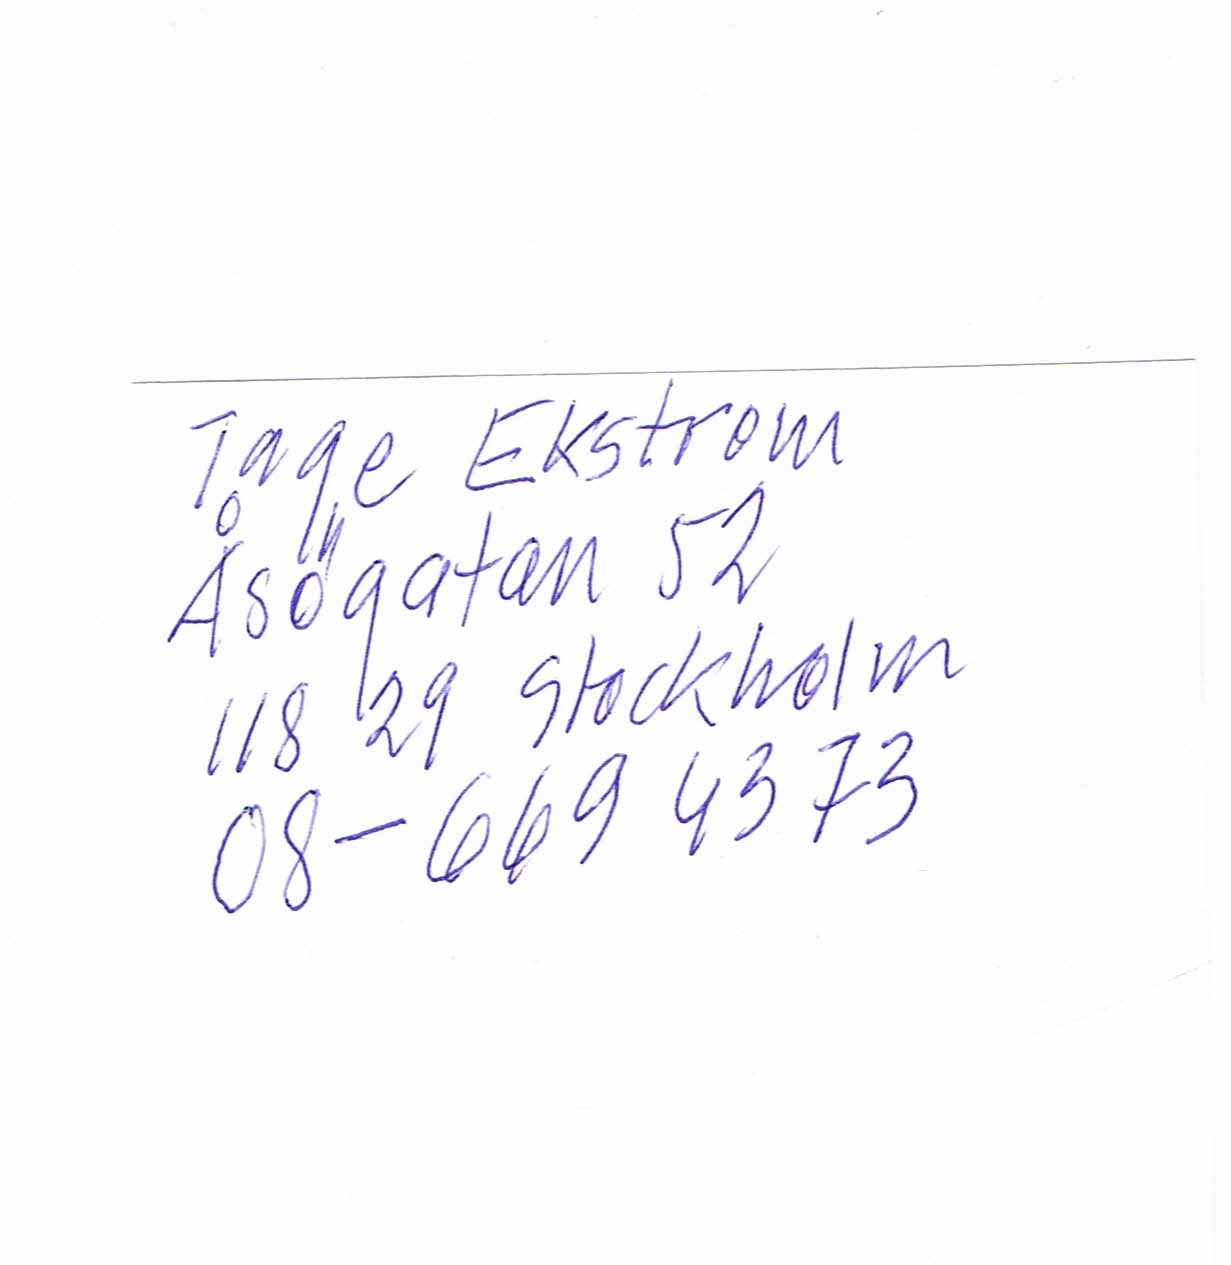 Tage Ekstrom
Åsögatan 52
118 29 Stockholm
08-669 4373